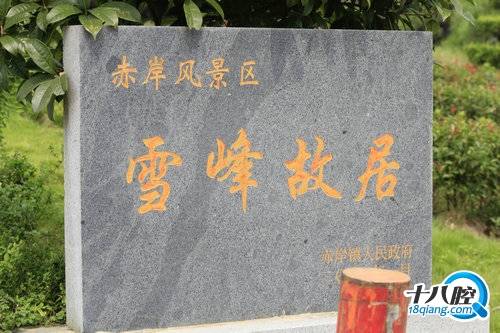 赤岸风景区
雪峰故居
赤岸镇人民政府
月
十八腔
18qiang.com